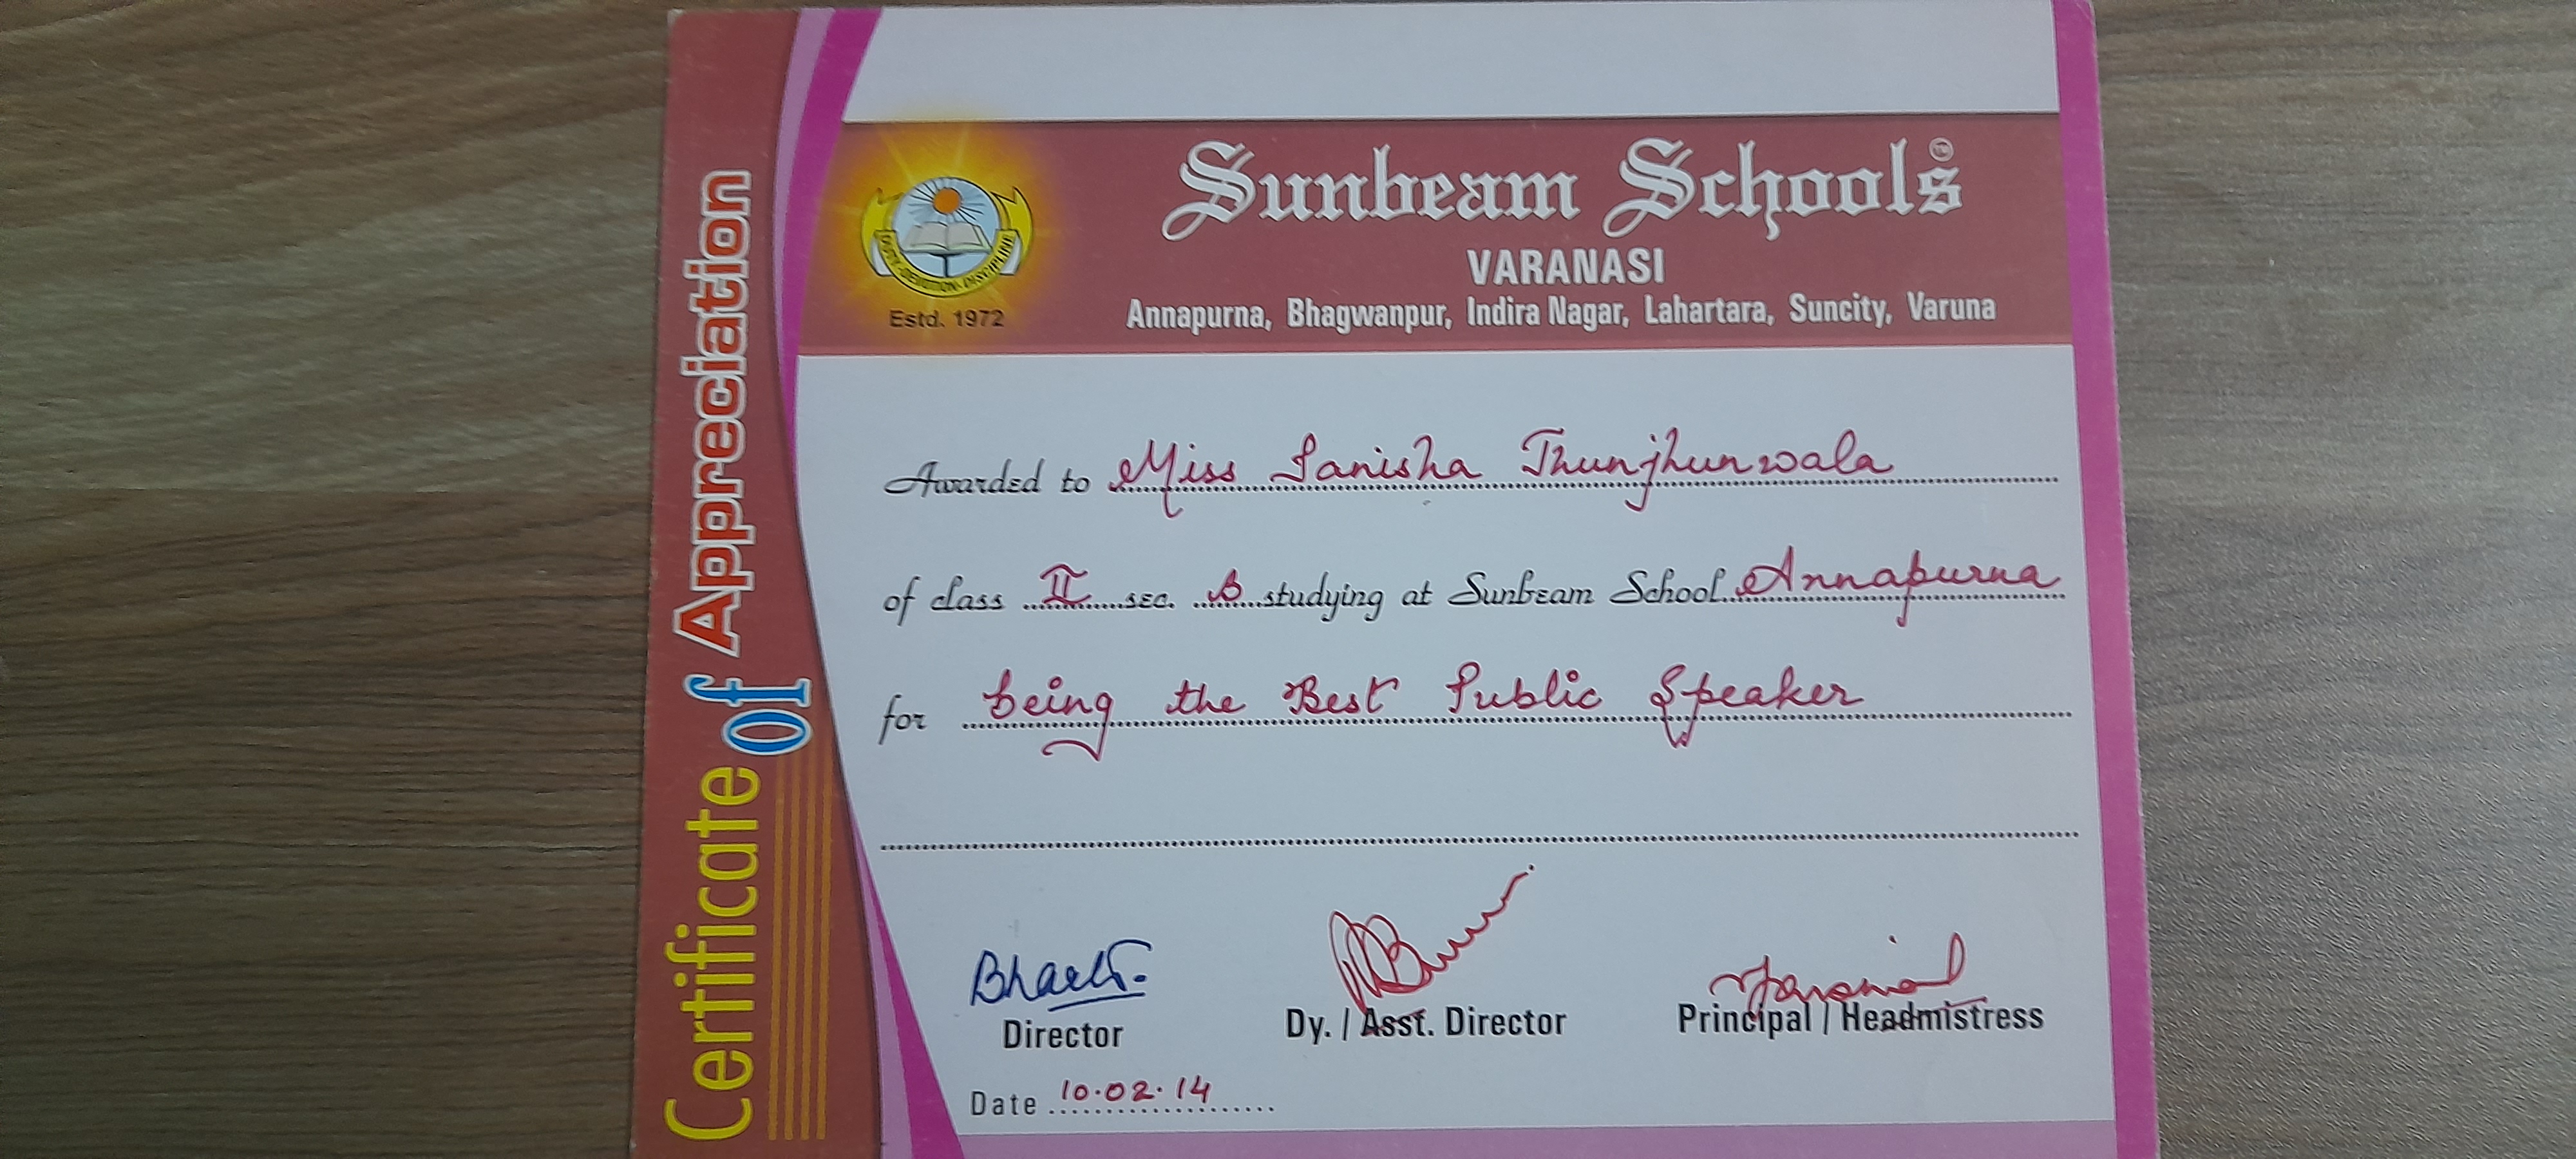 Certificate of Appreciation
Sunbeam Schools TM
VARANASI
Annapurna, Bhagwanpur, Indira Nagar, Lahartara, Suncity, Varuna
DUTY-DEVOTION-DISCIPLINE
Estd. 1972
Awarded to Miss Sanisha Jhunjhunwala
of class II sec. B studying at Sunbeam School Annapurna
for being the Best Public Speaker
Director
Dy. / Asst. Director
Principal / Headmistress
Date 10.02.14